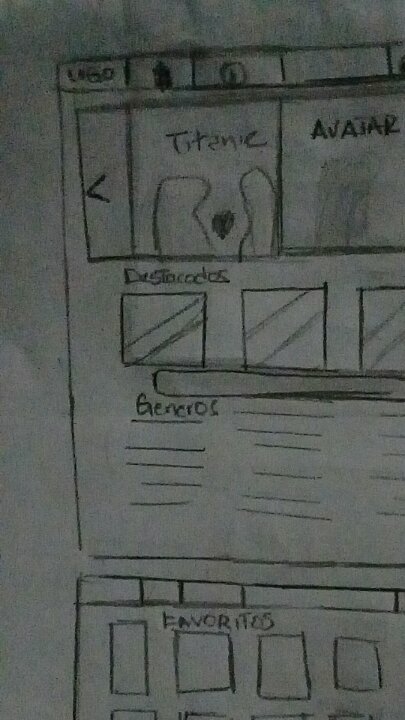 LOGO
Titanic
AVATAR
<
Destacados
Generos
FAVORITOS